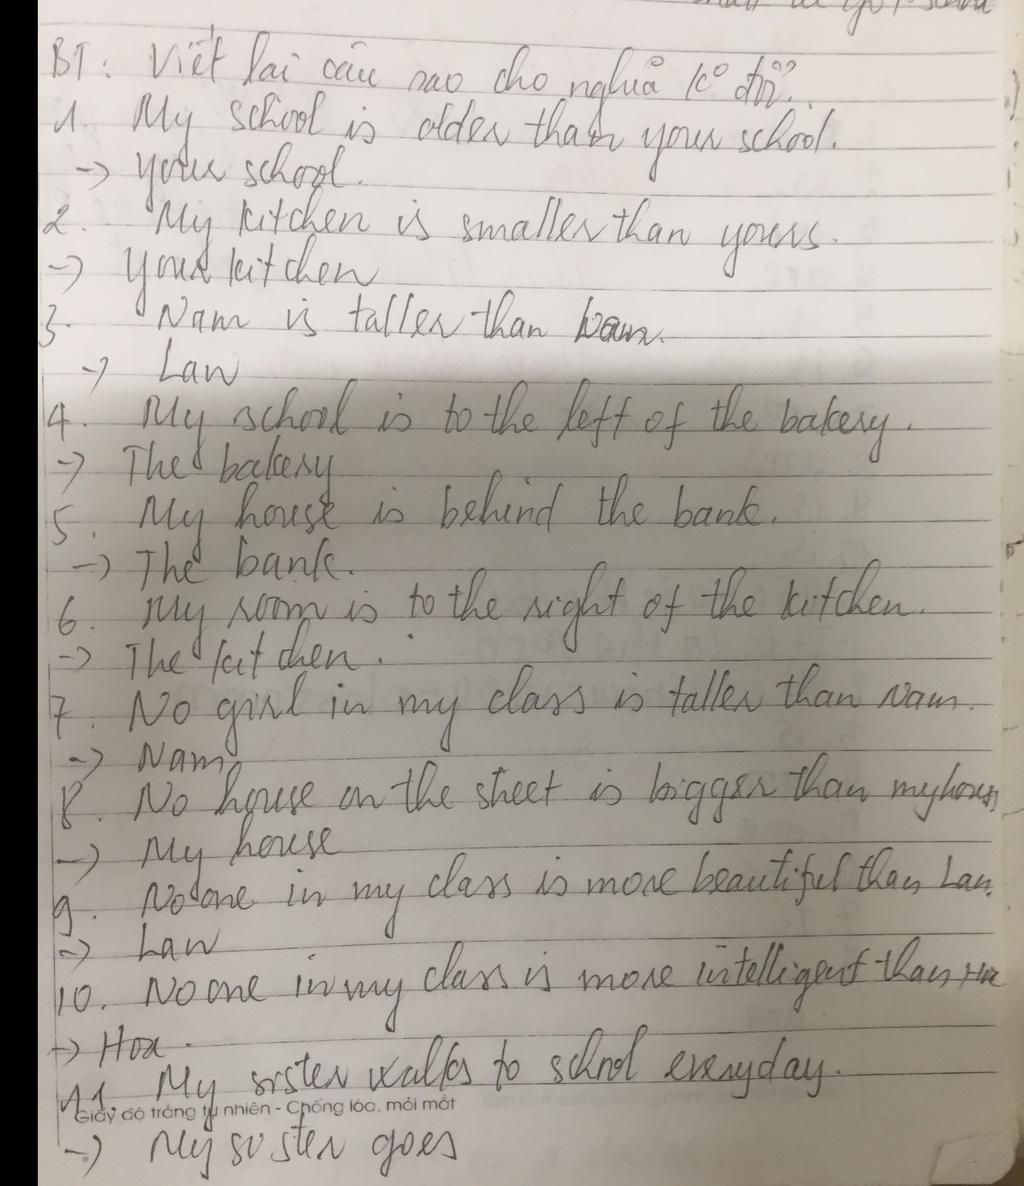 BT: Viết lại câu sao cho nghĩa ko đổi.
1. My school is older than your school.
-> your school.
2. My kitchen is smaller than yours.
-> your kitchen
3. Nam is taller than
-> Lan
4. My school is to the left of the bakery.
-> The bakery
5. My house is behind the bank.
-> The bank.
6. My room is to the right of the kitchen.
-> The kitchen.
7. No girl in my class is taller than Nam.
-> Nam
8. No house on the street is bigger than my house
-> My house
9. No one in my class is more beautiful than Lan.
-> Lan
10. No one in my class is more intelligent than Hoa
-> Hoa.
11. My sister walks to school everyday.
Giấy độ trắng tự nhiên - Chống lóa, mỏi mắt
-> My sister goes